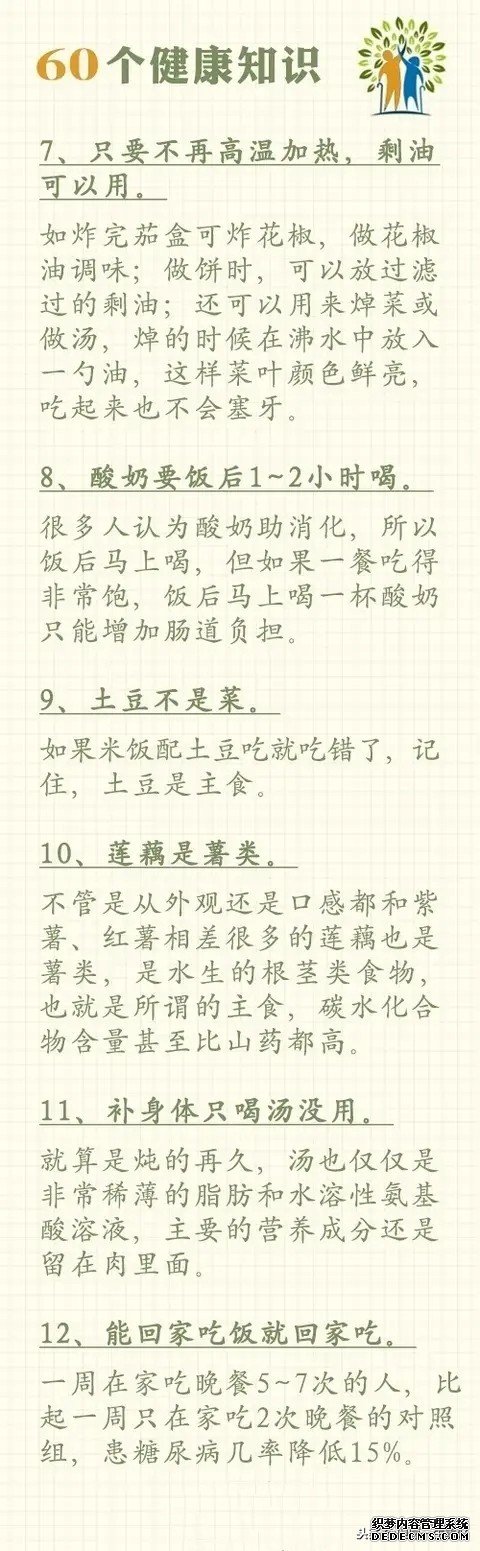 60个健康知识
7、只要不再高温加热，剩油
可以用。
如炸完茄盒可炸花椒，做花椒
油调味；做饼时，可以放过滤
过的剩油；还可以用来焯菜或
做汤，焯的时候在沸水中放入
一勺油，这样菜叶颜色鲜亮，
吃起来也不会塞牙。
8、酸奶要饭后1~2小时喝。
很多人认为酸奶助消化，所以
饭后马上喝，但如果一餐吃得
非常饱，饭后马上喝一杯酸奶
只能增加肠道负担。
9、土豆不是菜。
如果米饭配土豆吃就吃错了，记
住，土豆是主食。
10、莲藕是薯类。
不管是从外观还是口感都和紫
薯、红薯相差很多的莲藕也是
薯类，是水生的根茎类食物，
也就是所谓的主食，碳水化合
物含量甚至比山药都高。
11、补身体只喝汤没用。
就算是炖的再久，汤也仅仅是
非常稀薄的脂肪和水溶性氨基
酸溶液，主要的营养成分还是
留在肉里面。
12、能回家吃饭就回家吃。
一周在家吃晚餐5~7次的人，比
起一周只在家吃2次晚餐的对照
组，患糖尿病几率降低15%。
织梦内容管理系统
DEDECMS.COM